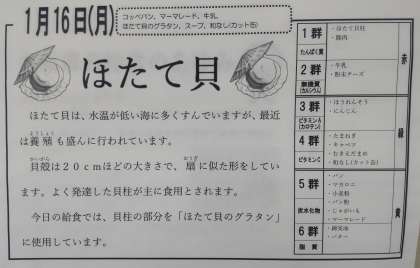 1月16日(月)
コッペパン、マーマレード、牛乳
ほたて貝のグラタン、スープ、和なし(カット缶)
ほたて貝
ほたて貝は、水温が低い海に多くすんでいますが、最近
は養殖も盛んに行われています。
ようしょく
貝殻は20cmほどの大きさで、扇に似た形をしてい
かいがら
おうぎ
ます。よく発達した貝柱が主に食用とされます。
今日の給食では、貝柱の部分を「ほたて貝のグラタン」
に使用しています。
1群
たんぱく質
・ほたて貝柱
・豚肉
2群
無機質
(カルシウム)
・牛乳
・粉末チーズ
赤
3群
ビタミンA
(カロテン)
・ほうれんそう
・にんじん
4群
ビタミンC
・たまねぎ
・キャベツ
・むきえだまめ
・和なし(カット缶)
緑
5群
炭水化物
・パン
・マカロニ
・小麦粉
・パン粉
・じゃがいも
・マーマレード
6群
脂質
・調合油
・バター
黄